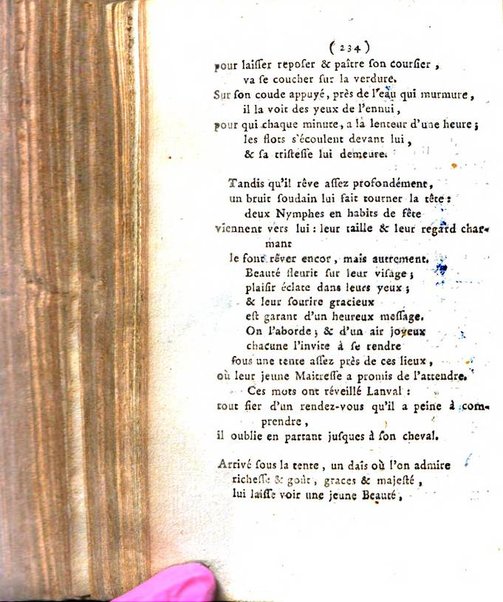 ( 234 )
pour laiſſer repoſer & paître ſon courſier,
va ſe coucher ſur la verdure.
Sur ſon coude appuyé, près de l'eau qui murmure,
il la voit des yeux de l'ennui,
pour qui chaque minute, a la lenteur d'une heure;
les flots s'écoulent devant lui,
& ſa triſteſſe lui demeure.
Tandis qu'il rêve aſſez profondément,
un bruit ſoudain lui fait tourner la tête:
deux Nymphes en habits de fête
viennent vers lui: leur taille & leur regard char-
mant
le font rêver encor, mais autrement.
Beauté fleurit ſur leur viſage;
plaiſir éclate dans leurs yeux;
& leur ſourire gracieux
eſt garant d'un heureux meſſage.
On l'aborde; & d'un air joyeux
chacune l'invite à ſe rendre
ſous une tente aſſez près de ces lieux,
où leur jeune Maitreſſe a promis de l'attendre.
Ces mots ont réveillé Lanval:
tout fier d'un rendez-vous qu'il a peine à com-
prendre,
il oublie en partant juſques à ſon cheval.
Arrivé ſous la tente, un dais où l'on admire
richeſſe & goût, graces & majeſté,
lui laiſſe voir une jeune Beauté,